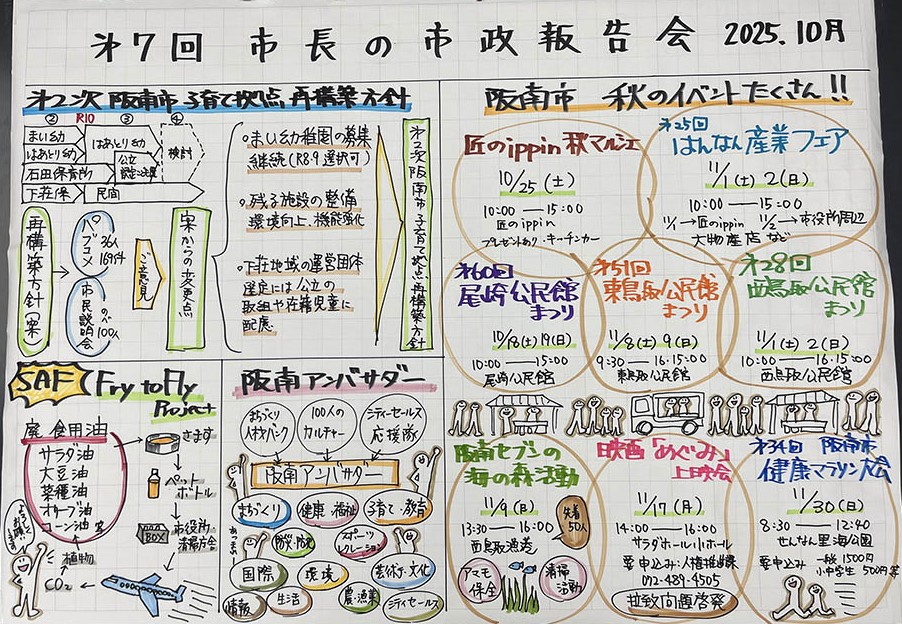 第7回 市長の市政報告会 2025.10月
第2次 阪南市 子育て拠点 再構築方針
② R10 ③ ④
まい幼
はあとり幼
はあとり幼
検討
石田保育所
公立
下荘保
民間
再構築方針(案)
パブコメ 36人 169件
市民説明会 のべ100人
ご意見
案からの変更点
・まい幼稚園の募集
継続(R8.9選択可)
・残る施設の整備
環境向上、機能強化
・下荘地域の運営団体
選定には公立の
取組や在籍児童に
配慮。
第2次阪南市子育て拠点再構築方針
阪南市 秋のイベントたくさん!!
匠のippin 秋マルシェ
10/25(土)
10:00 — 15:00
匠のippin
プレゼントあり・キーチンカー
第25回
はんなん産業フェア
11/1(土) 2(日)
10:00 — 15:00
11/1→匠のippin 11/2→市役所周辺
大物産店など
第60回
尾崎公民館
まつり
10/18(土)19(日)
10:00 — 15:00
尾崎公民館
第51回
東鳥取公民館
まつり
11/8(土)9(日)
9:30 — 16.15:00
東鳥取公民館
第28回
西鳥取公民館
まつり
11/1(土) 2(日)
10:00 — 16.15:00
西鳥取公民館
SAF Fry to Fly
Project
廃食用油
サラダ油
大豆油
菜種油
オリーブ油
コーン油 等
さます
ペット
ボトル
BOX
市役所
植物
CO₂
阪南アンバサダー
まちづくり
人材バンク
100人の
カルチャー
シティーセールス
応援隊
阪南アンバサダー
まちづくり
健康・福祉
子育て・教育
防災・防犯
スポーツ
レクレーション
国際
環境
芸術・文化
情報
生活
農・漁業
シティセールス
阪南セブンの
海の森活動
11/9(日)
13:30 — 16:00
西鳥取漁港
先着
50人
アマモ
保全
清掃
活動
映画「めぐみ」
上映会
11/17(月)
14:00 — 16:00
サラダホール小ホール
要申込み:人権推進課
072-489-4505
拉致問題啓発
第34回 阪南市
健康マラソン大会
11/30(日)
8:30 — 12:40
せんなん里海公園
要申込み
一般 1500円
小中学生 500円 等